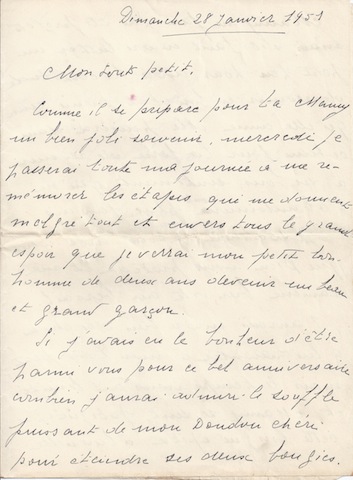 Dimanche 28 Janvier 1951
Mon tout petit,
Comme il se prépare pour ta Mamy
un bien joli souvenir, mercredi je
passerai toute ma journée à me re-
mémorer les étapes qui me donnent
malgré tout et envers tous le grand
espoir que je verrai mon petit bon-
homme de deux ans devenir un beau
et grand garçon.
Si j'avais eu le bonheur d'être
parmi vous pour ce bel anniversaire
combien j'aurai admiré le souffle
puissant de mon Doudou chéri
pour éteindre ses deux bougies.